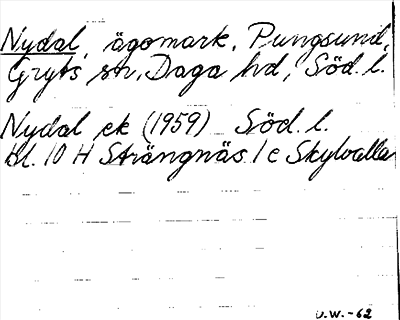 Nydal, ägomark, Pungsund,
Gryts sn, Daga hd, Söd. l.
Nydal ek (1959) Söd. l.
Bl. 10 H Strängnäs 1 e Skylvalla
U.W. -62